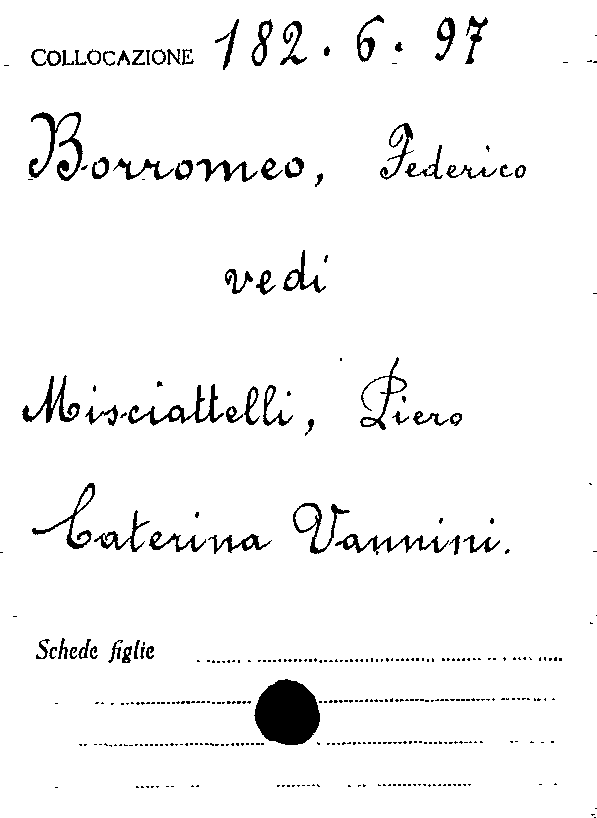 COLLOCAZIONE 182.6.97
Borromeo, Federico
vedi
Misciattelli, Piero
Caterina Vannini.
Schede figlie